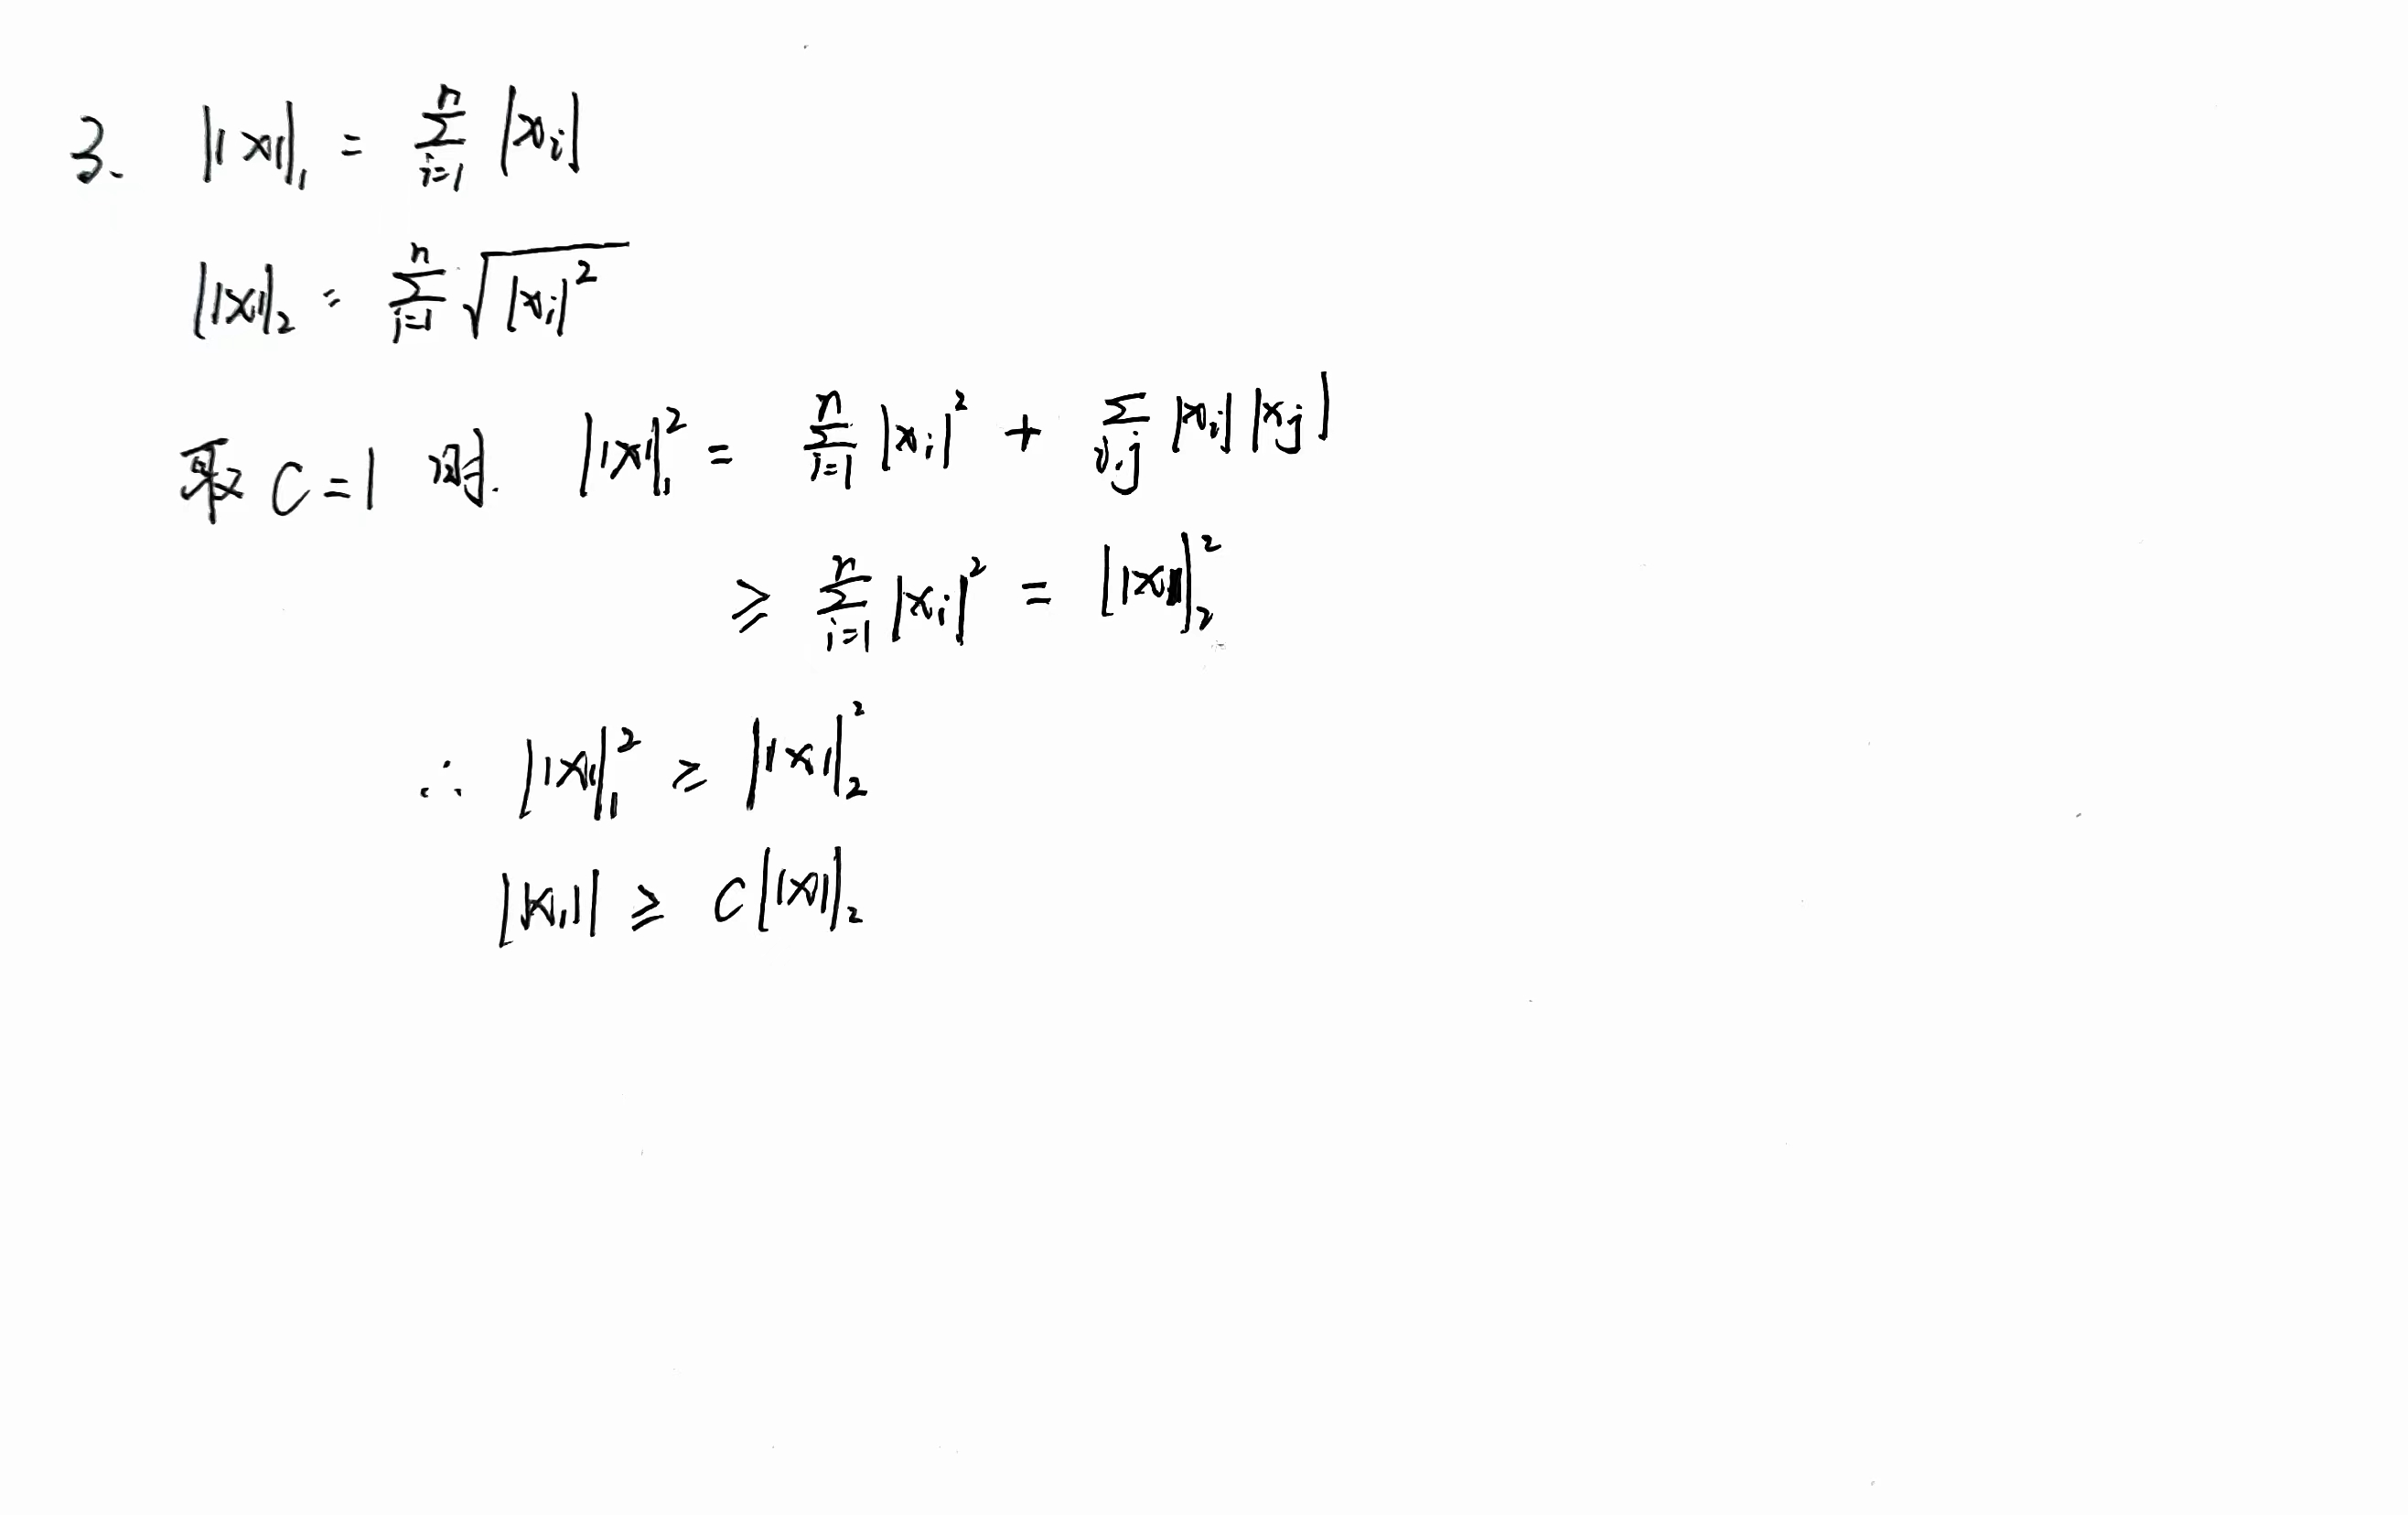 3、 ||x||₁ = ∑ᵢ₌₁ⁿ |xᵢ|
||x||₂ = ∑ᵢ₌₁ⁿ √|xᵢ|²
取 C=1 时. ||x||₁² = ∑ᵢ₌₁ⁿ |xᵢ|² + ∑ᵢ,ⱼ |xᵢ| |xⱼ|
≥ ∑ᵢ₌₁ⁿ |xᵢ|² = ||x||₂²
∴ ||x||₁² ≥ ||x||₂²
||x₁|| ≥ C||x||₂